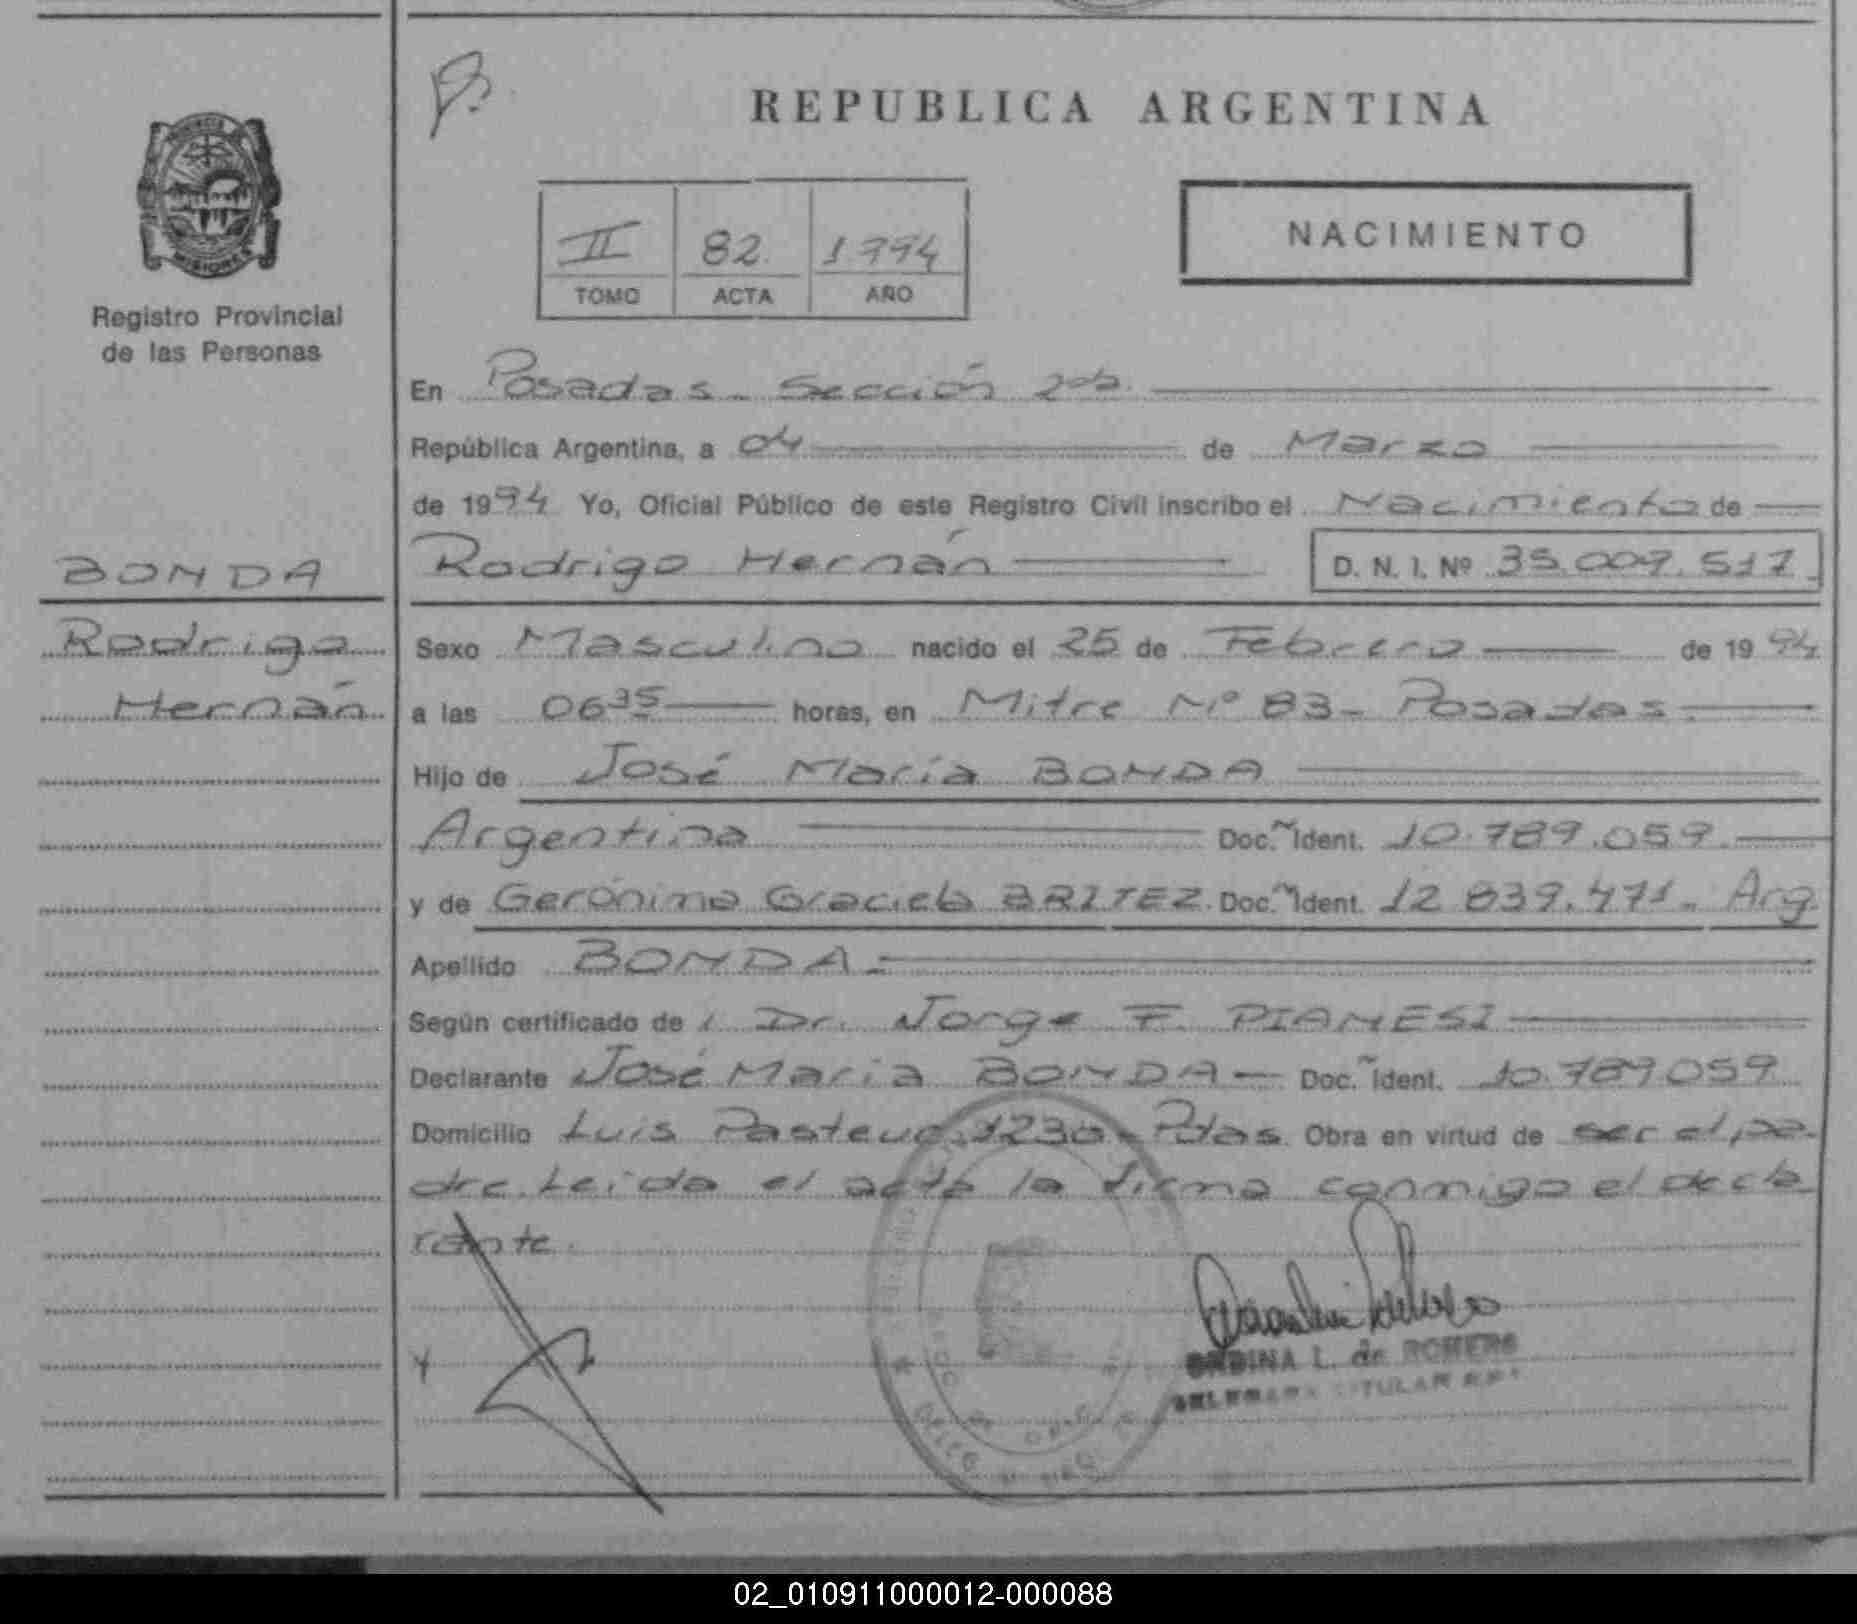 REPUBLICA ARGENTINA
II 82. 1994
TOMO ACTA AÑO
NACIMIENTO
MISIONES
Registro Provincial
de las Personas
BONDA
Rodrigo
Hernán
En Posadas - Sección 2da.
República Argentina, a 04 de Marzo
de 1994 Yo, Oficial Público de este Registro Civil inscribo el Nacimiento de
Rodrigo Hernán D. N. I. Nº 35.009.517.
Sexo Masculino nacido el 25 de Febrero de 1994
a las 06 35 horas, en Mitre Nº 83 - Posadas.
Hijo de José María BONDA
Argentina Doc. Ident. 10.789.059.
y de Gerónima Graciela BRITEZ. Doc. Ident. 12.839.471. Arg.
Apellido BONDA.
Según certificado de Dr. Jorge F. PIANESI
Declarante José María BONDA - Doc. Ident. 10.789059
Domicilio Luis Pasteur 1230 - Pdas. Obra en virtud de ser el pa-
dre. Leida el acta la firma conmigo el decla-
rante.
L. de ROMERO
TITULAR
02_010911000012-000088